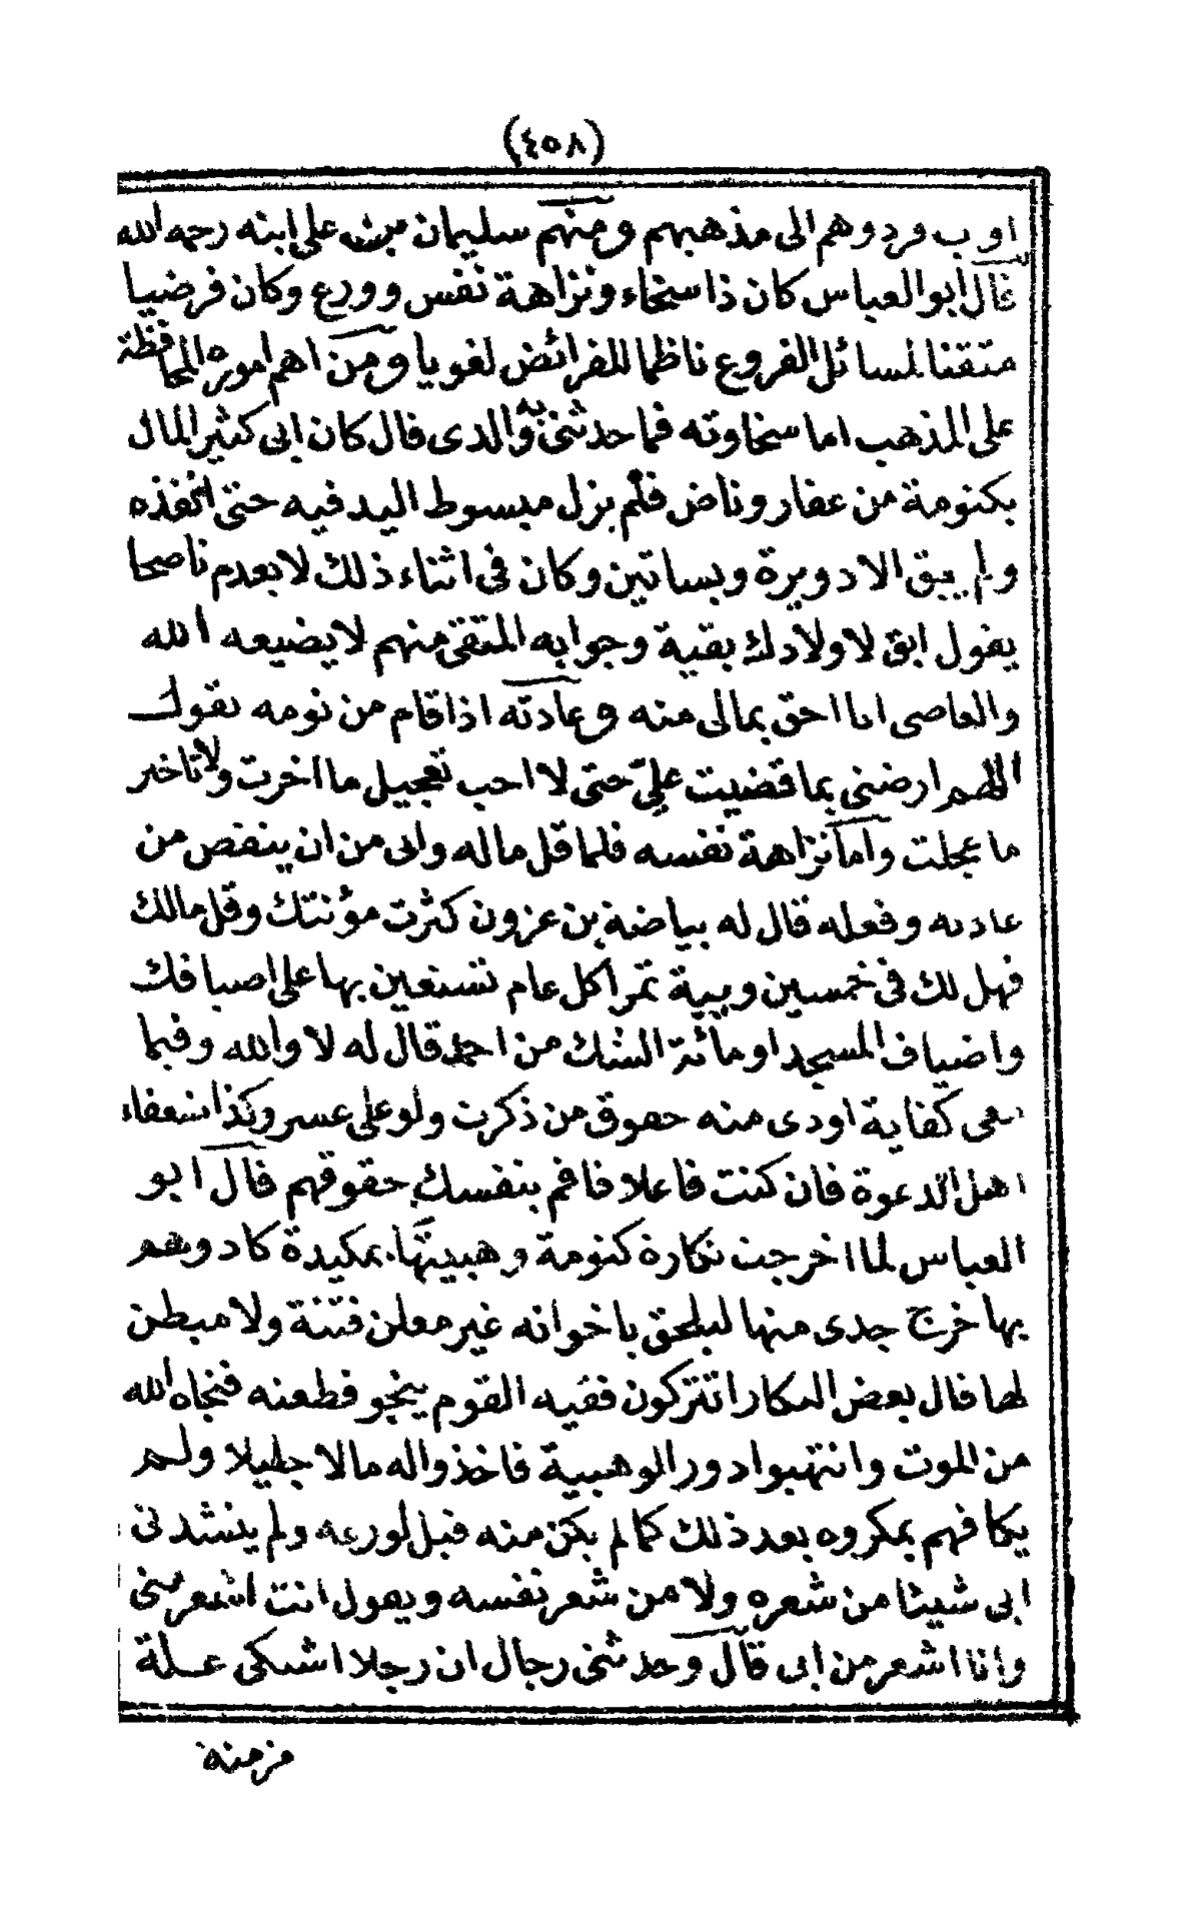 (٤٥٨)
اوب فردوهم الى مذهبهم ومنهم سليمان بن على ابنه رحمه الله
قال ابو العباس كان ذا سخاء ونزاهة نفس وورع وكان فرضيا
متقنا لمسائل الفروع ناظما للفرائض لغويا ومن اهم اموره المحافظة
على المذهب اما سخاوته فما حدثنى به والدى قال كان ابى كثير المال
بكنومة من عقار وناض فلم يزل مبسوط اليد فيه حتى انفذه
ولم يبق الا دويرة وبساتين وكان فى اثناء ذلك لا يعدم ناصحا
يقول ابق لاولادك بقية وجوابه المتقى منهم لا يضيعه الله
والعاصى انا احق بمالى منه وعادته اذا قام من نومه يقول
اللهم ارضنى بما قضيت علىّ حتى لا احب تعجيل ما اخرت ولا تاخير
ما عجلت واما نزاهة نفسه فلما قل ماله وابى من ان ينقص من
عادته وفعله قال له بياضة بن عزون كثرت مؤنتك وقل مالك
فهل لك فى خمسين ويبية تمرا كل عام تستعين بها على اضيافك
واضياف المسجد او مائة الشك من احمد قال له لا والله وفيما
معى كفاية اودى منه حقوق من ذكرت ولو على عسر وكذا ضعفاء
اهل الدعوة فان كنت فاعلا فاقم بنفسك حقوقهم قال ابو
العباس لما اخرجت نكارة كنومة وهبيتها بمكيدة كادوهم
بها خرج جدى منها ليلحق باخوانه غير معلن فتنة ولا مبطن
لها فقال بعض النكار اتتركون فقيه القوم ينجو فطعنه فنجاه الله
من الموت وانتهبوا دور الوهبية فاخذوا له مالا جليلا ولم
يكافهم بمكروه بعد ذلك كما لم يكن منه قبل لورعه ولم ينشدنى
ابى شيئا من شعره ولا من شعر نفسه ويقول انت اشعر منى
وانا اشعر من ابى قال وحدثنى رجال ان رجلا اشتكى عـلة
مزمنة